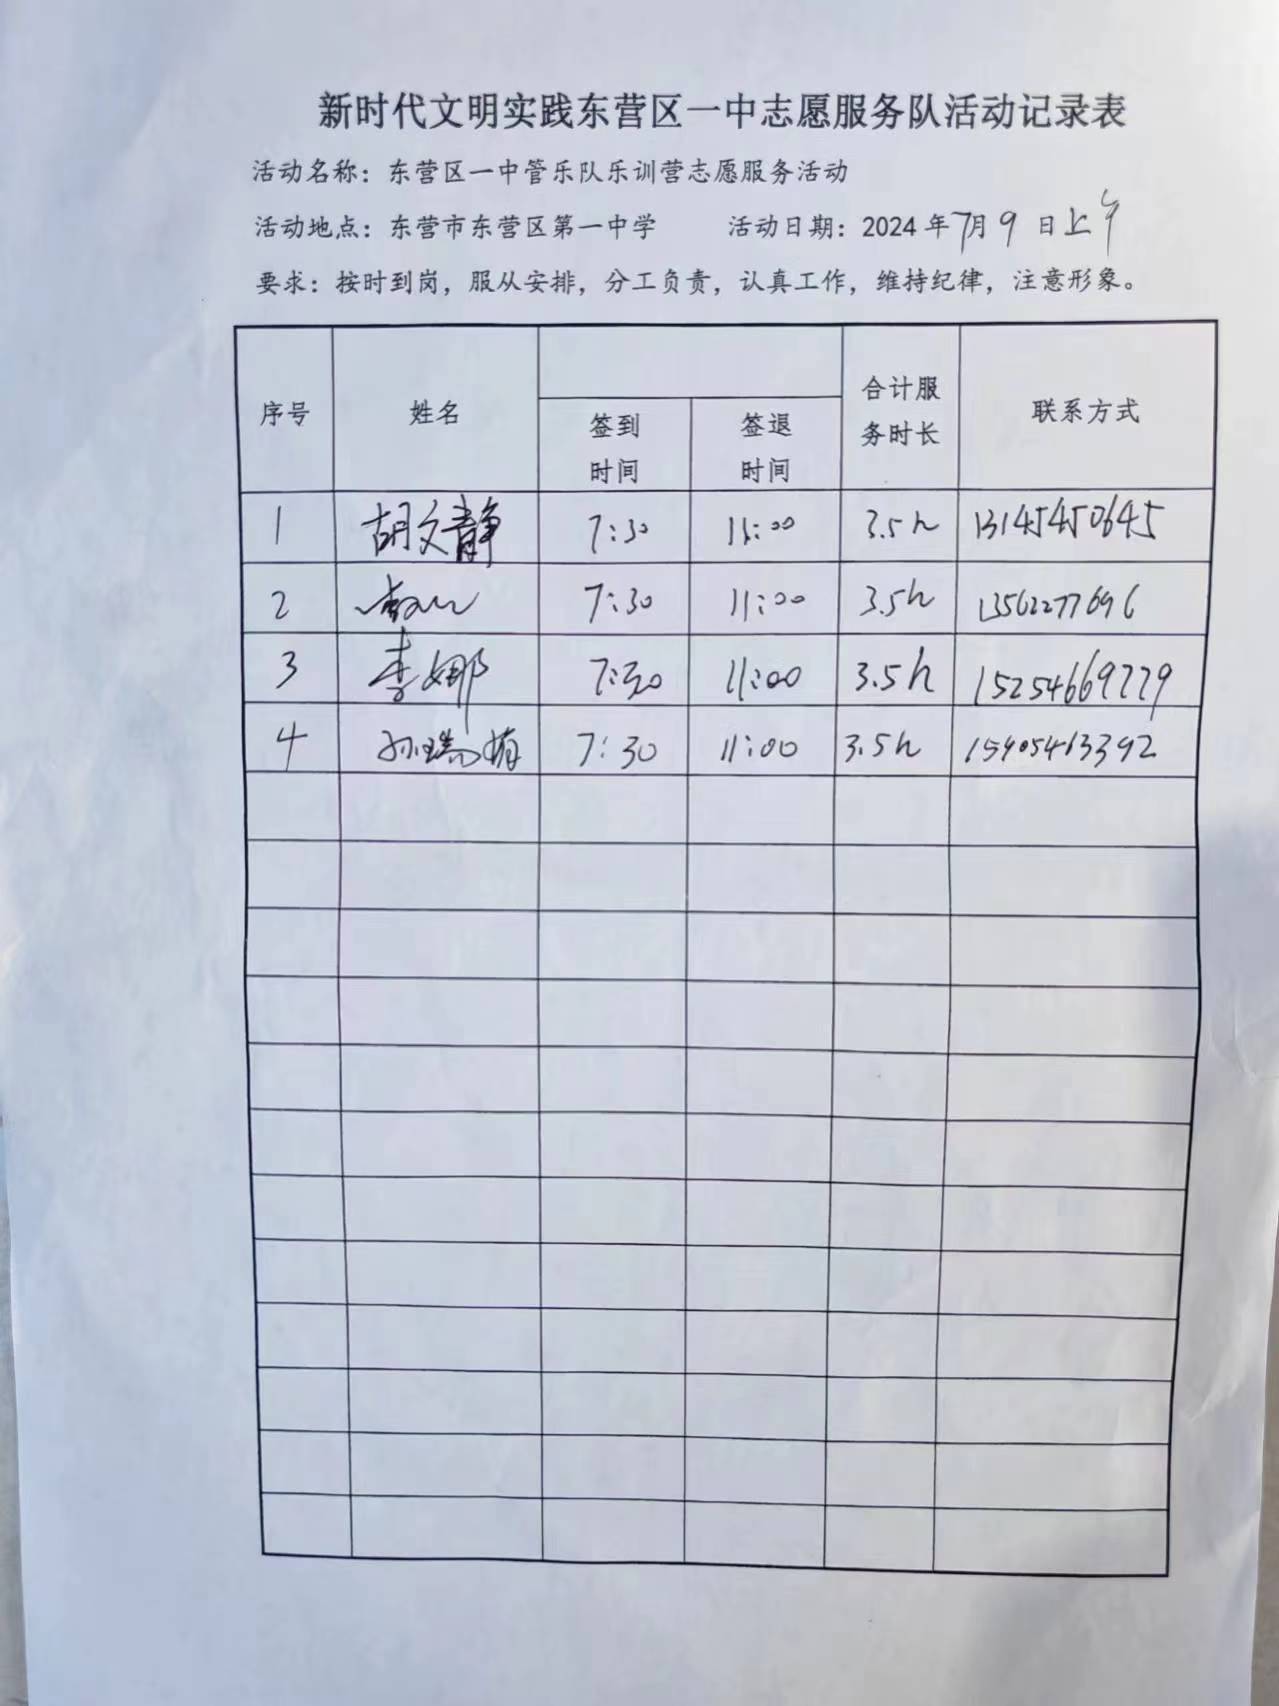 新时代文明实践东营区一中志愿服务队活动记录表
活动名称：东营区一中管乐队乐训营志愿服务活动
活动地点：东营市东营区第一中学 活动日期：2024 年7月9日上午
要求：按时到岗，服从安排，分工负责，认真工作，维持纪律，注意形象。
序号 姓名 签到时间 签退时间 合计服务时长 联系方式
1 胡文静 7:30 11:00 3.5h 13145450645
2 7:30 11:00 3.5h 13562277696
3 李娜 7:30 11:00 3.5h 15254669779
4 孙瑞 7:30 11:00 3.5h 15905463392